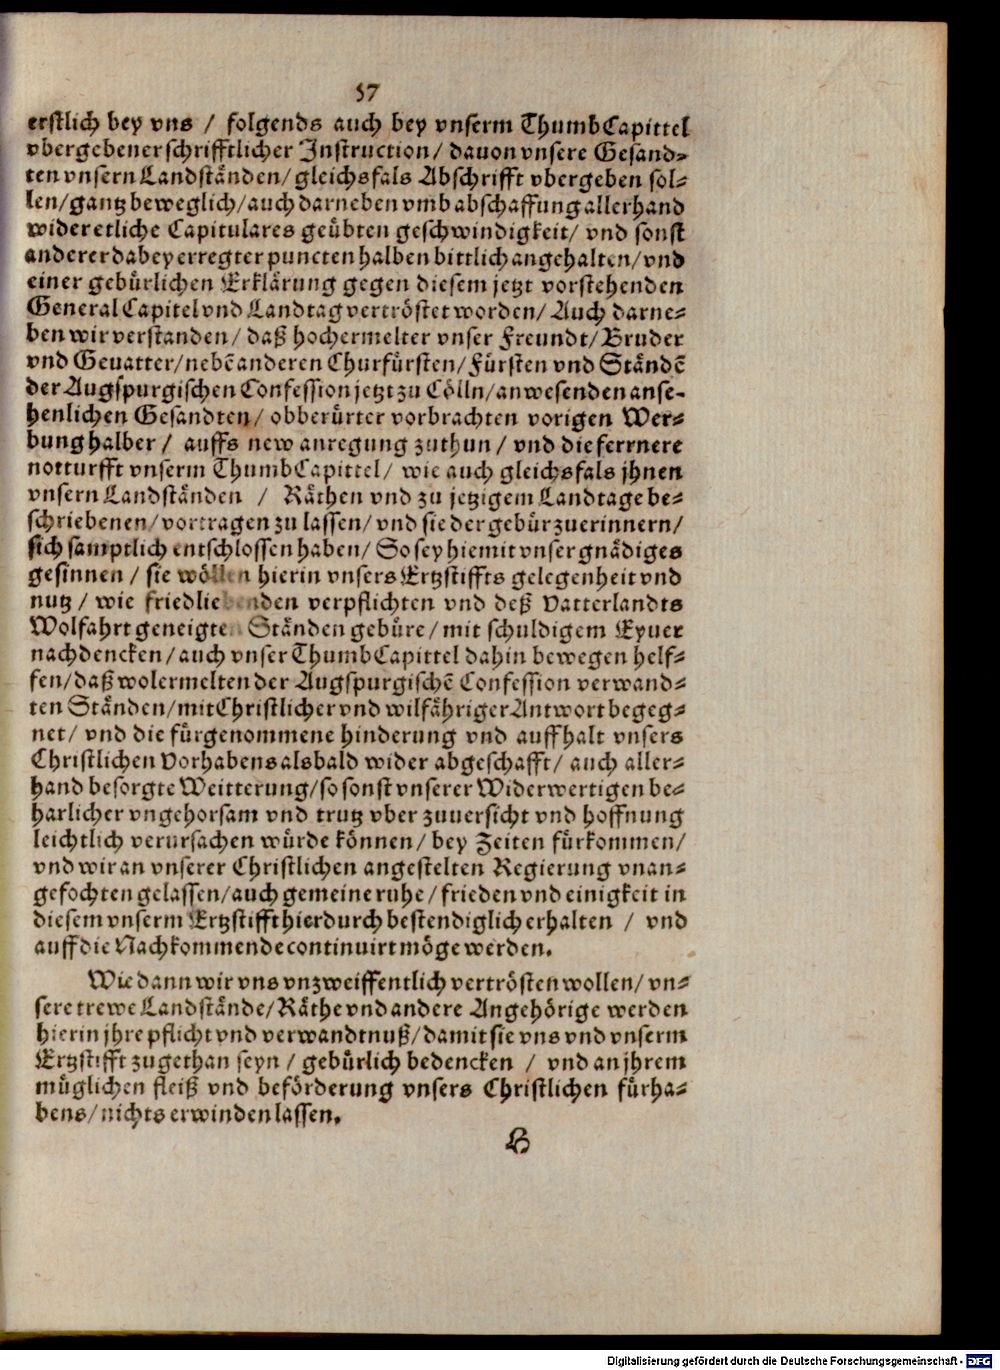 57
erstlich bey vns / folgends auch bey vnserm ThumbCapittel
vbergebener schrifftlicher Instruction/ dauon vnsere Gesand-
ten vnsern Landständen/gleichsfals Abschrifft vbergeben sol-
len/gantz beweglich/auch darneben vmb abschaffung allerhand
wider etliche Capitulares geübten geschwindigkeit/ vnd sonst
anderer dabey erregter puncten halben bittlich angehalten/vnd
einer gebürlichen Erklärung gegen diesem jetzt vorstehenden
General Capitel vnd Landtag vertröstet worden/ Auch darne-
ben wir verstanden/ daß hochermelter vnser Freundt/Bruder
vnd Geuatter/nebē anderen Churfürsten/Fürsten vnd Ständē
der Augspurgischen Confession jetzt zu Cölln/anwesenden anse-
henlichen Gesandten/ obberürter vorbrachten vorigen Wer-
bung halber / auffs new anregung zuthun / vnd die ferrnere
notturfft vnserm ThumbCapittel/ wie auch gleichsfals jhnen
vnsern Landständen / Räthen vnd zu jetzigem Landtage be-
schriebenen/vortragen zu lassen/ vnd sie der gebür zuerinnern/
sich samptlich entschlossen haben/ So sey hiemit vnser gnädiges
gesinnen / sie wöllen hierin vnsers Ertzstiffts gelegenheit vnd
nutz / wie friedliebenden verpflichten vnd deß Vatterlandts
Wolfahrt geneigten Ständen gebüre/ mit schuldigem Eyuer
nachdencken/auch vnser ThumbCapittel dahin bewegen helf-
fen/daß wolermelten der Augspurgischē Confession verwand-
ten Ständen/mit Christlicher vnd wilfähriger Antwort begeg-
net/ vnd die fürgenommene hinderung vnd auffhalt vnsers
Christlichen Vorhabens alsbald wider abgeschafft/ auch aller-
hand besorgte Weitterung/so sonst vnserer Widerwertigen be-
harlicher vngehorsam vnd trutz vber zuuersicht vnd hoffnung
leichtlich verursachen würde können/ bey Zeiten fürkommen/
vnd wir an vnserer Christlichen angestelten Regierung vnan-
gefochten gelassen/auch gemeine ruhe/frieden vnd einigkeit in
diesem vnserm Ertzstifft hierdurch bestendiglich erhalten / vnd
auff die Nachkommende continuirt möge werden.
Wie dann wir vns vnzweiffentlich vertrösten wollen/ vn-
sere trewe Landstände/Räthe vnd andere Angehörige werden
hierin jhre pflicht vnd verwandtnuß/damit sie vns vnd vnserm
Ertzstifft zugethan seyn / gebürlich bedencken / vnd an jhrem
müglichen fleiß vnd beförderung vnsers Christlichen fürha-
bens/nichts erwinden lassen.
H
Digitalisierung gefördert durch die Deutsche Forschungsgemeinschaft - DFG